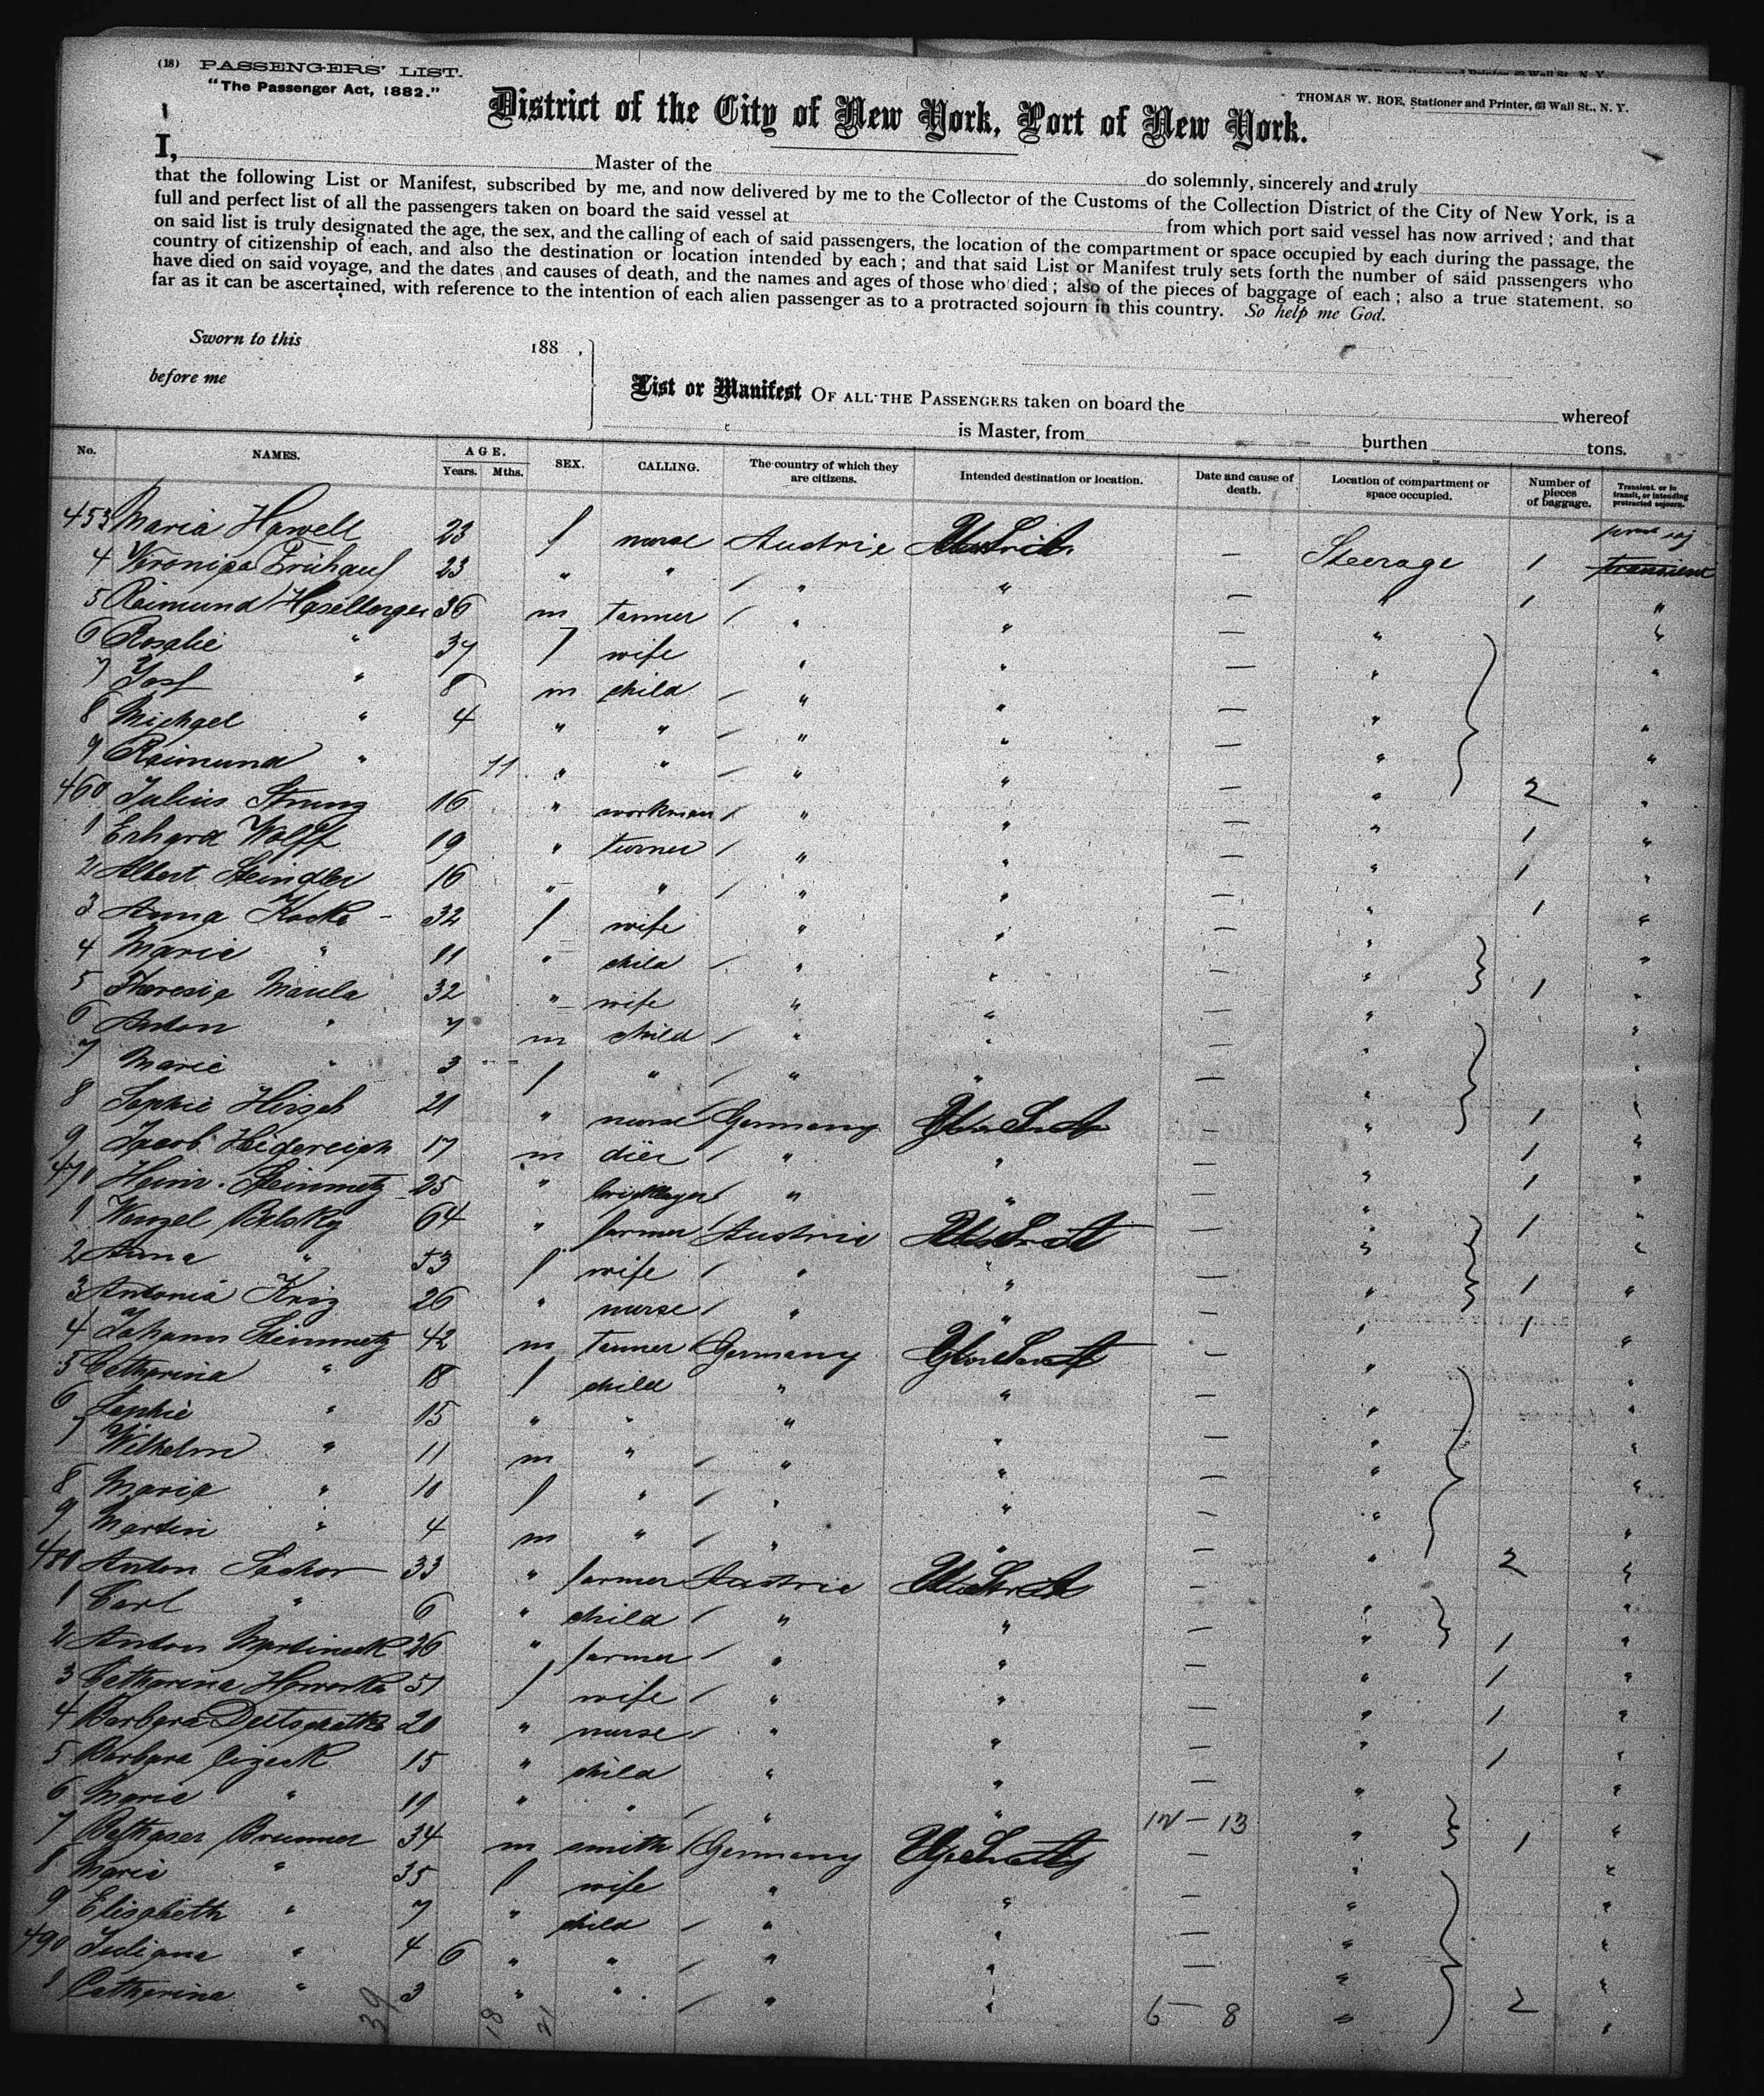 (18) PASSENGERS' LIST.
"The Passenger Act, 1882."
THOMAS W. ROE, Stationer and Printer, 63 Wall St., N. Y.
District of the City of New York, Port of New York.
I, Master of the do solemnly, sincerely and truly
that the following List or Manifest, subscribed by me, and now delivered by me to the Collector of the Customs of the Collection District of the City of New York, is a
full and perfect list of all the passengers taken on board the said vessel at from which port said vessel has now arrived; and that
on said list is truly designated the age, the sex, and the calling of each of said passengers, the location of the compartment or space occupied by each during the passage, the
country of citizenship of each, and also the destination or location intended by each; and that said List or Manifest truly sets forth the number of said passengers who
have died on said voyage, and the dates and causes of death, and the names and ages of those who died; also of the pieces of baggage of each; also a true statement, so
far as it can be ascertained, with reference to the intention of each alien passenger as to a protracted sojourn in this country. So help me God.
Sworn to this 188 ,
before me
List or Manifest OF ALL THE PASSENGERS taken on board the whereof
is Master, from burthen tons.
No. NAMES. AGE. Years. Mths. SEX. CALLING. The country of which they are citizens. Intended destination or location. Date and cause of death. Location of compartment or space occupied. Number of pieces of baggage. Transient, or in transit, or intending protracted sojourn.
453 Maria Hawell 23 f nurse Austria — Steerage 1 transient
4 Veronica 23 " " " " — " 1 "
5 Raimund Haselberger 36 m tanner " " — " "
6 Rosalie " 37 f wife " " — " "
7 Josf " 8 m child " " — " "
8 Michael " 4 " " " " — " "
9 Raimund " 11 " " " " — " 2 "
460 Julius Strunz 16 " workman " " — " 1 "
1 Erhard Wolff 19 " turner " " — " 1 "
2 Albert Steindler 16 " " " " — " 1 "
3 Anna Kocka 32 f wife " " — " "
4 Marie " 11 " child " " — " 1 "
5 Theresia Maula 32 " wife " " — " "
6 Anton " 7 m child " " — " "
7 Marie " 3 f " " " — " 1 "
8 Sophie Hirsch 21 " nurse Germany — " 1 "
9 Jacob 17 m " " — " 1 "
470 Heinr. Steinmetz 25 " bricklayer " " — " 1 "
1 Wenzel Belsky 64 " farmer Austria — " "
2 Anna " 53 f wife " " — " 1 "
3 Antonia Kriz 26 " nurse " " — " 1 "
4 Johann Steinmetz 42 m tanner Germany — " "
5 Catherina " 18 f child " " — " "
6 Sophie " 15 " " " " — " "
7 Wilhelm " 11 m " " " — " "
8 Maria " 10 f " " " — " "
9 Martin " 4 m " " " — " 2 "
480 Anton Sachor 33 " farmer Austria — " "
1 Carl " 6 " child " " — " 1 "
2 Anton Martineck 26 " farmer " " — " 1 "
3 Catharina Howorka 51 f wife " " — " 1 "
4 Barbara 20 " nurse " " — " 1 "
5 Barbara Cizeck 15 " child " " — " "
6 Marie " 19 " " " " 12 — 13 " 1 "
7 Balthasar Brunner 34 m smith Germany — " "
8 Marie " 35 f wife " " — " "
9 Elisabeth " 7 " child " " — " "
490 Juliana " 4 6 " " " " — " "
1 Catherina " 3 " " " " 6 — 8 " 2 "
39 18 21